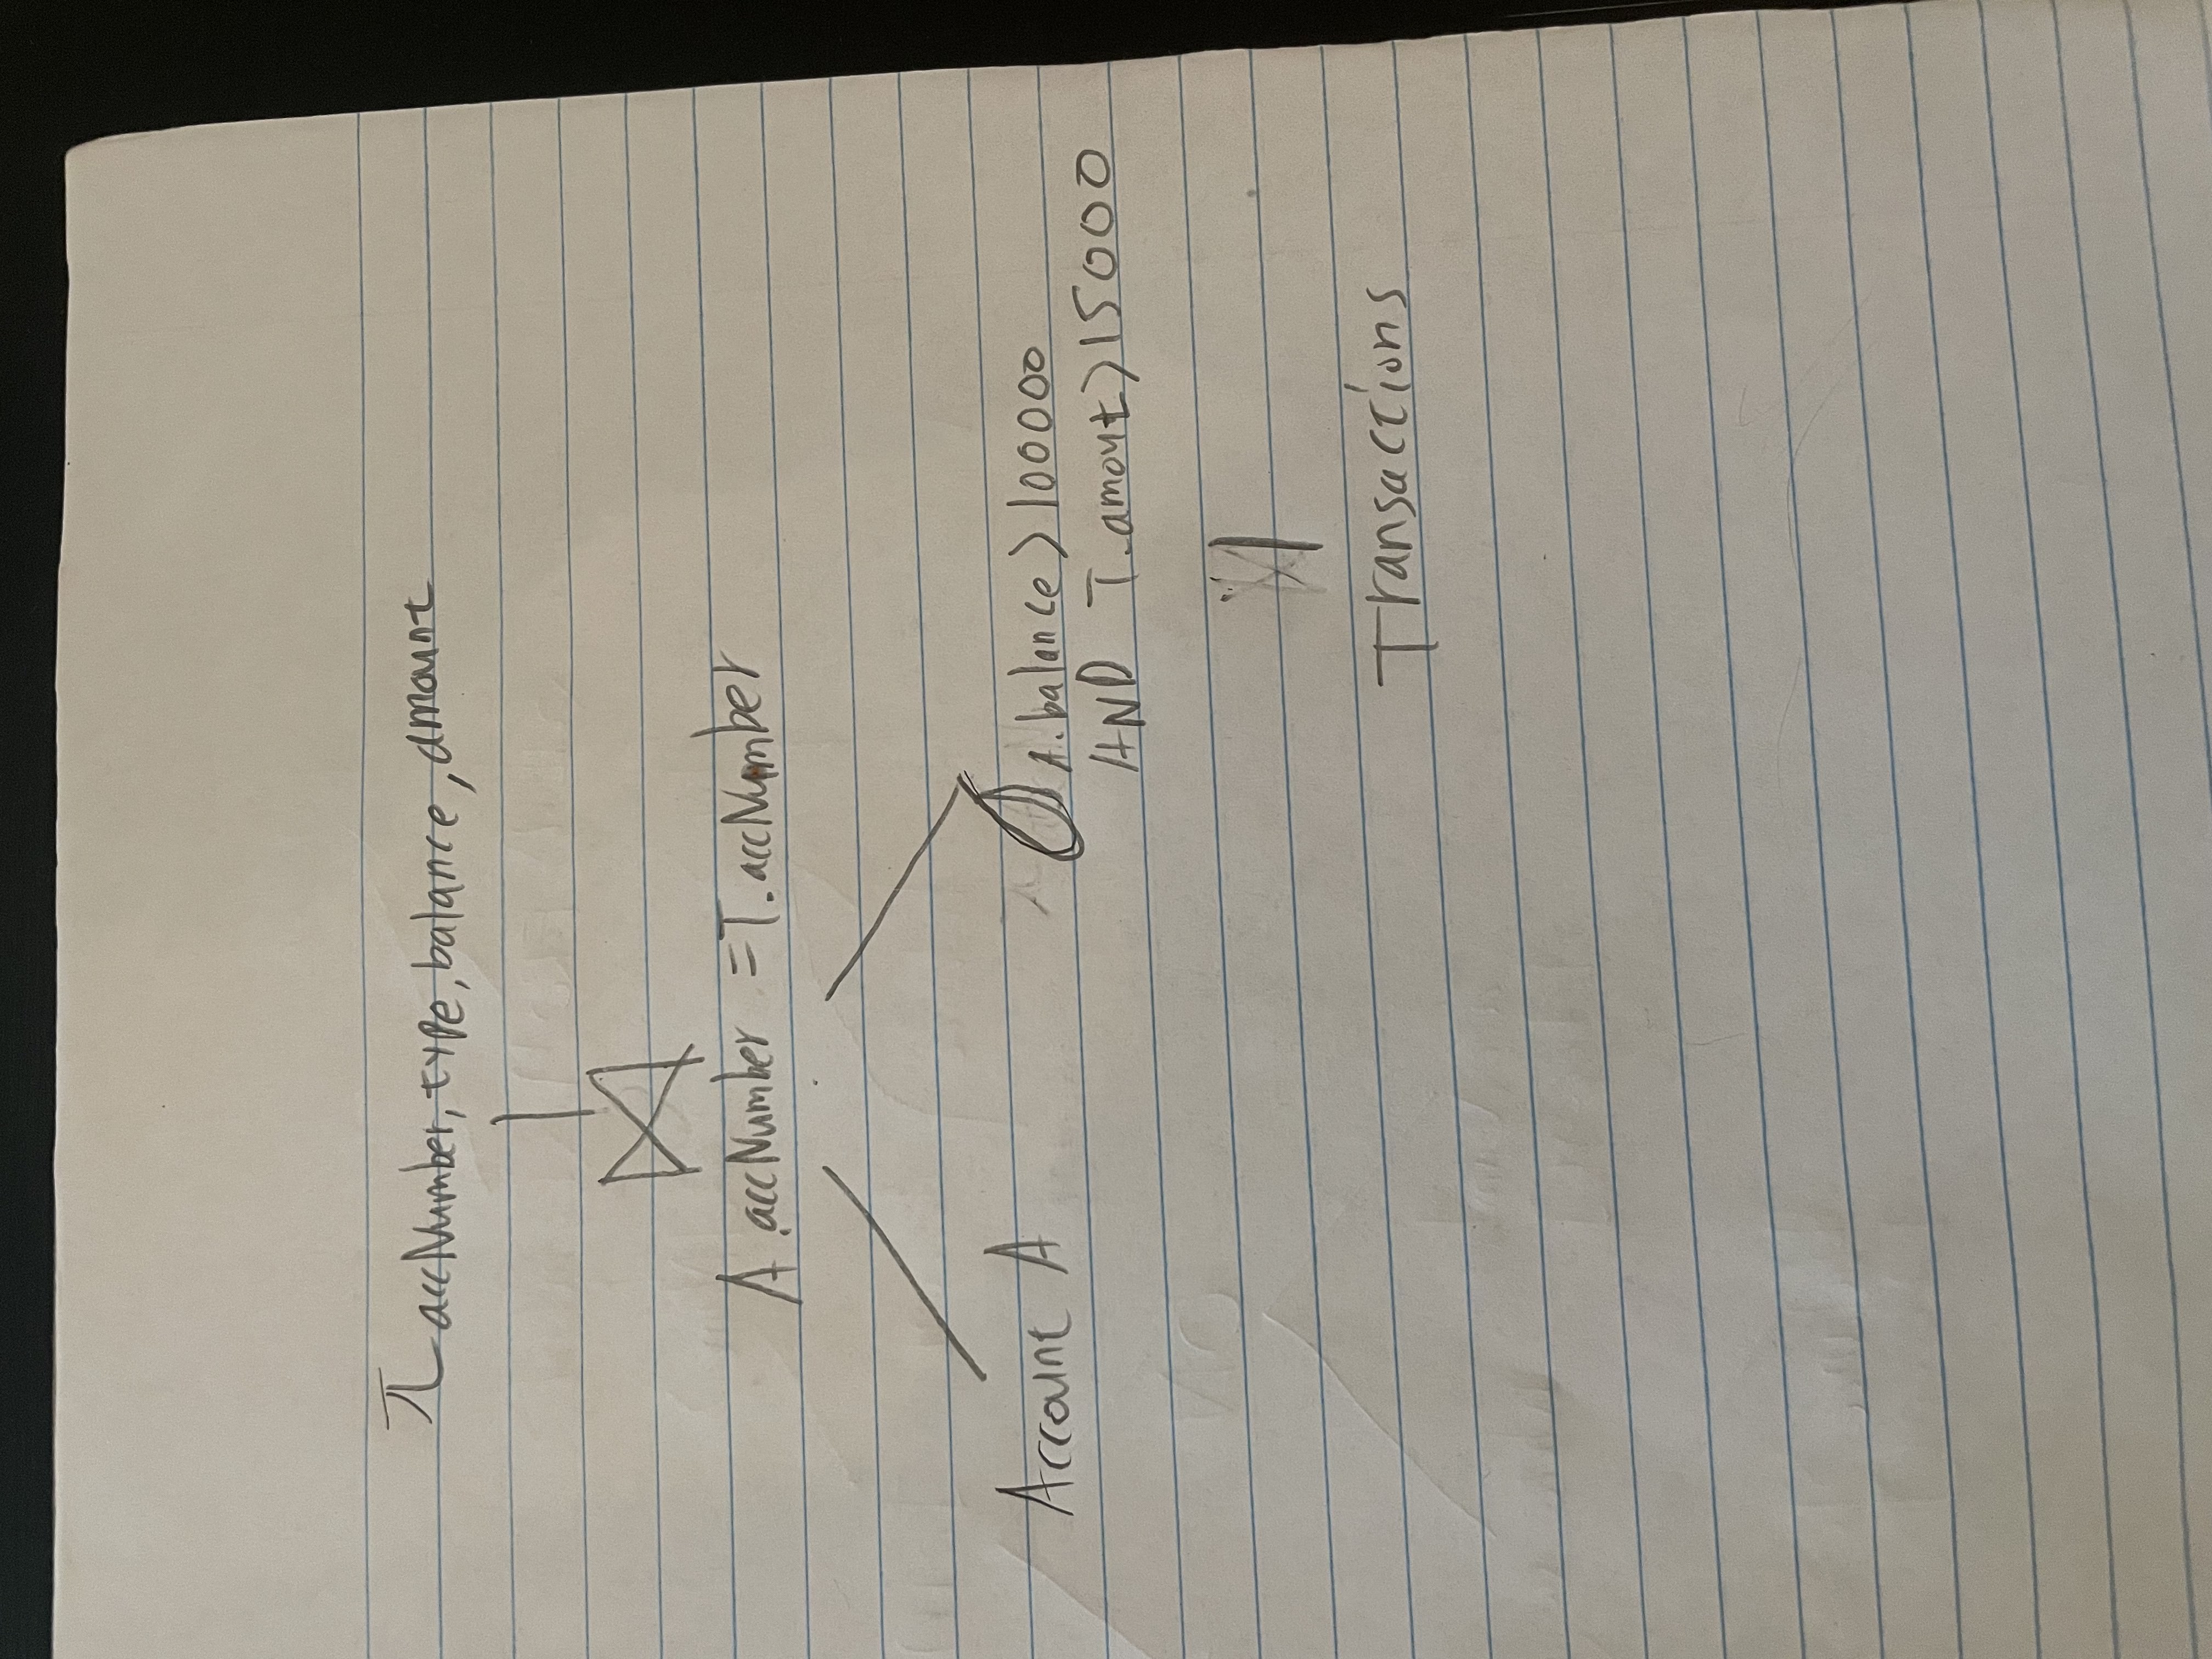 π accNumber, type, balance, amount
⋈
A.accNumber = T.accNumber
Account A
σ A.balance > 100000
AND T.amout > 15000
Transactions